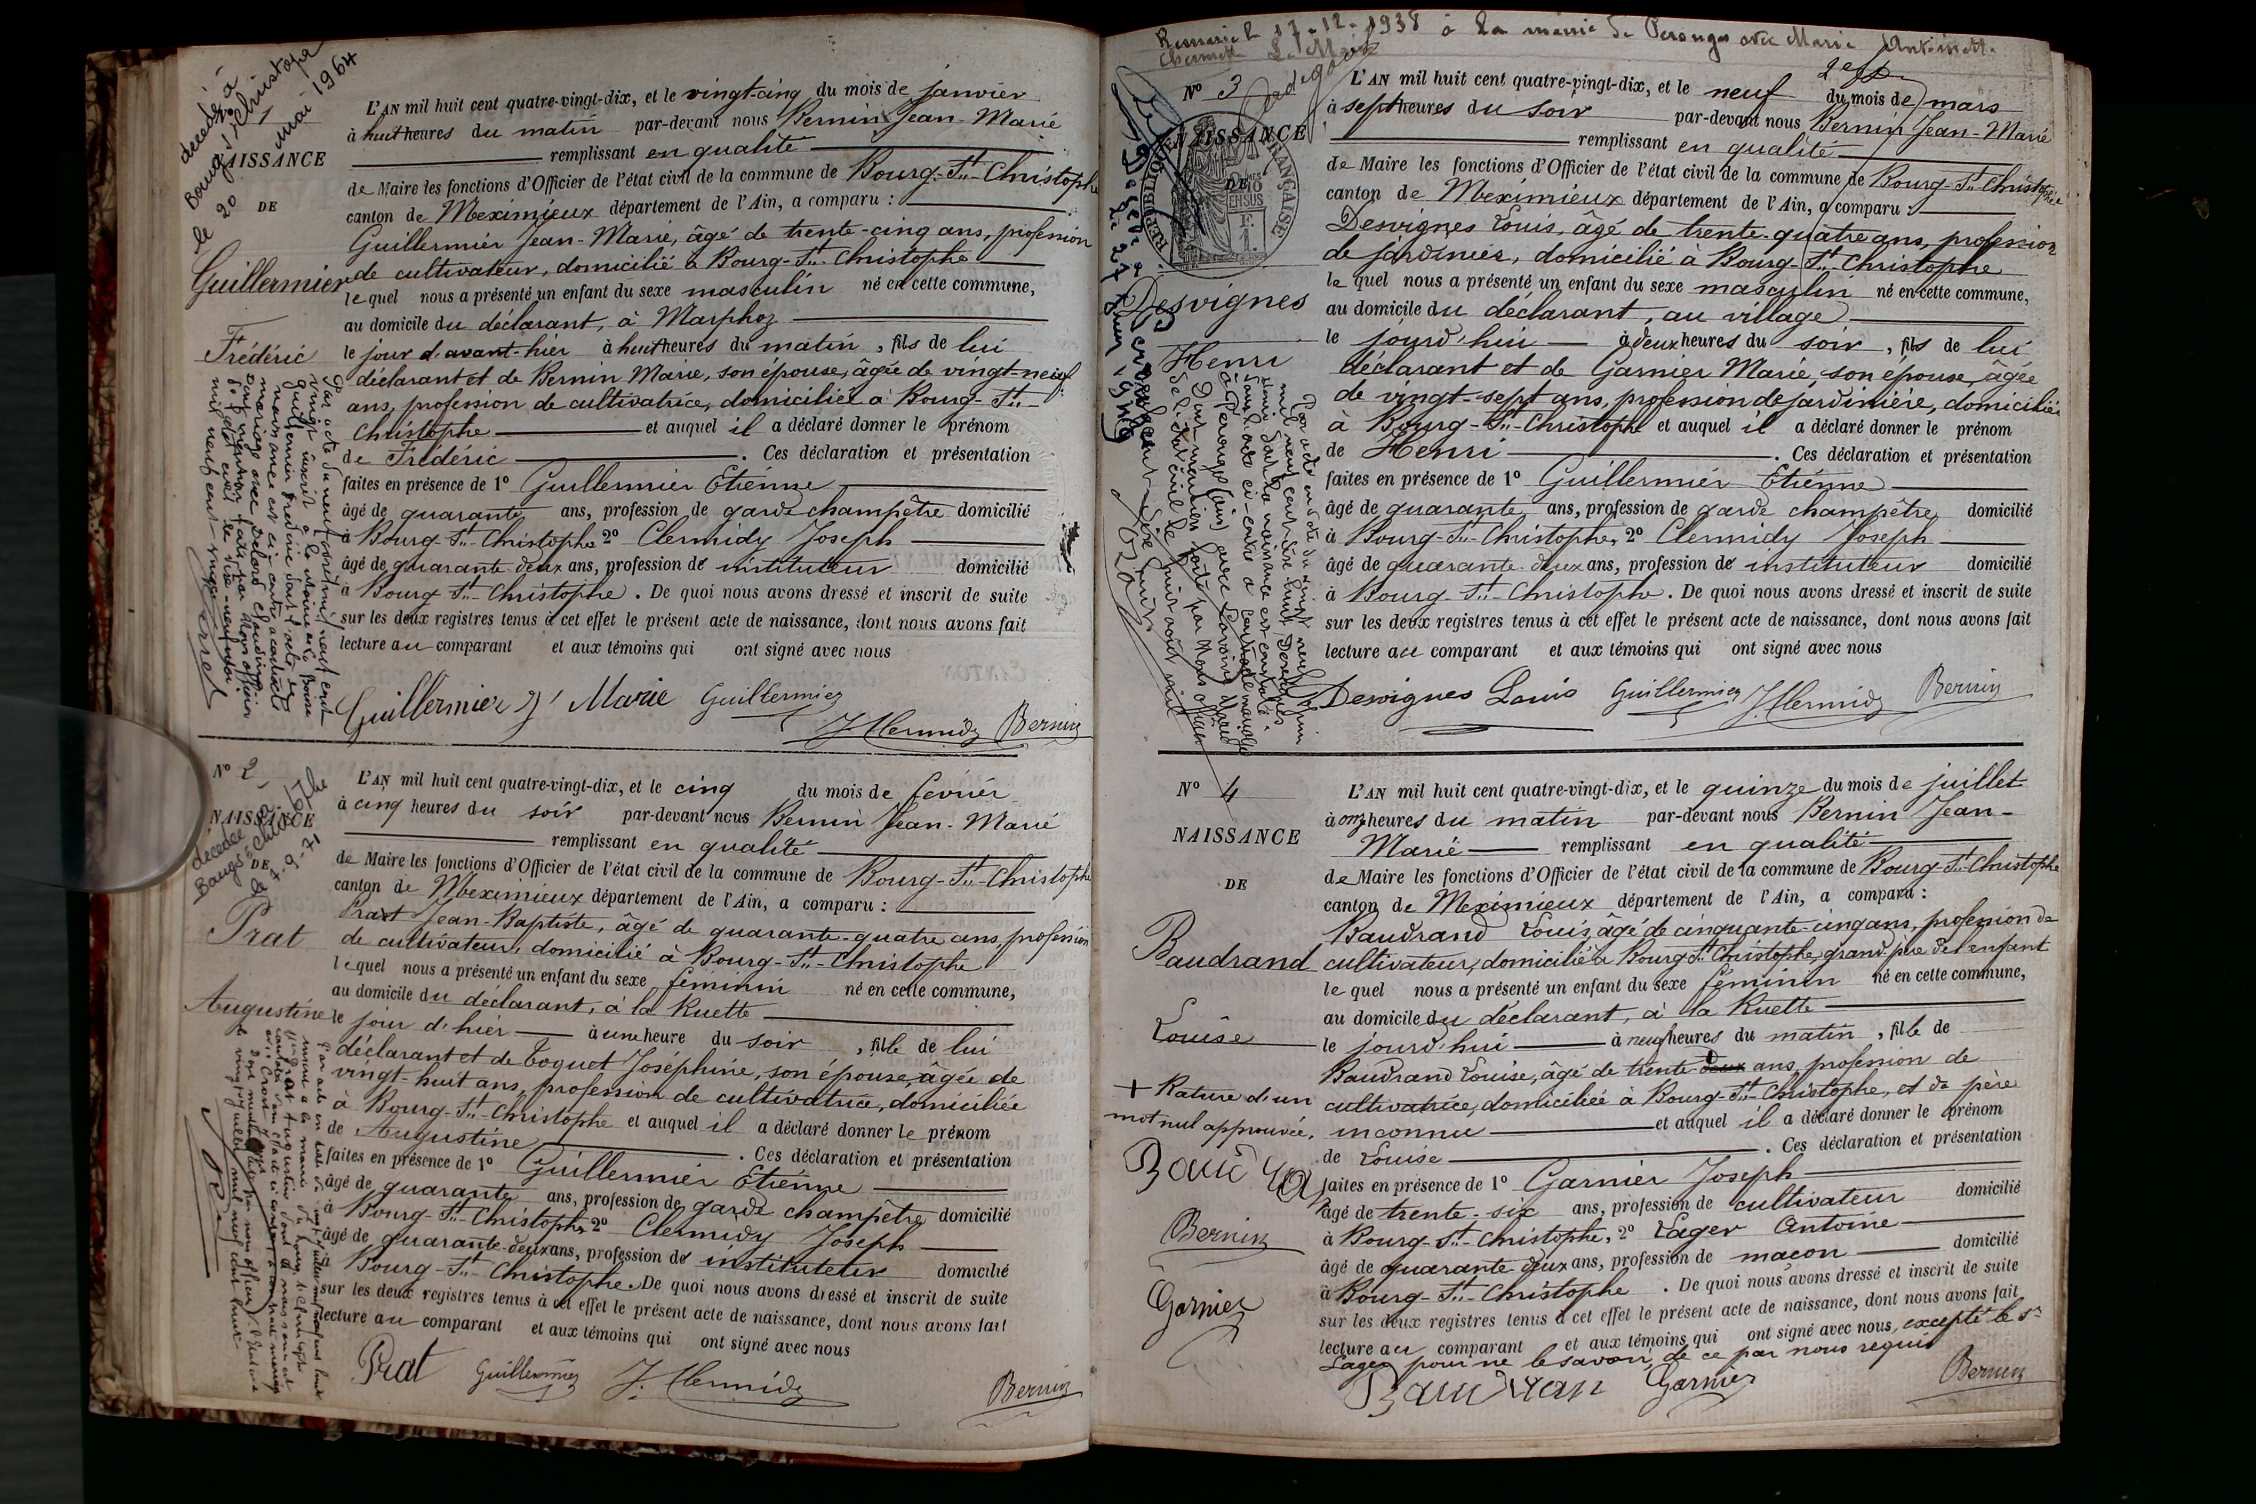 décédé à
Bourg St Christophe
le 20 mai 1964
NAISSANCE
DE
Guillermier
Frédéric
L'AN mil huit cent quatre-vingt-dix, et le vingt-cinq du mois de janvier
à huit heures du matin par-devant nous Bernin Jean-Marie
remplissant en qualité
de Maire les fonctions d'Officier de l'état civil de la commune de Bourg-St-Christophe
canton de Meximieux département de l'Ain, a comparu :
Guillermier Jean-Marie, âgé de trente-cinq ans, profession
de cultivateur, domicilié à Bourg-St-Christophe
lequel nous a présenté un enfant du sexe masculin né en cette commune,
au domicile du déclarant, à Marphoz
le jour d'avant-hier à huit heures du matin, fils de lui
déclarant et de Bernin Marie, son épouse, âgée de vingt-neuf
ans, profession de cultivatrice, domiciliée à Bourg-St-
Christophe et auquel il a déclaré donner le prénom
de Frédéric . Ces déclaration et présentation
faites en présence de 1° Guillermier Etienne
âgé de quarante ans, profession de garde champêtre domicilié
à Bourg-St-Christophe 2° Clermidy Joseph
âgé de quarante-deux ans, profession de instituteur domicilié
à Bourg St-Christophe. De quoi nous avons dressé et inscrit de suite
sur les deux registres tenus à cet effet le présent acte de naissance, dont nous avons fait
lecture au comparant et aux témoins qui ont signé avec nous
Guillermier J Marie Guillermier
J. Clermidy Bernin
N° 2
NAISSANCE
DE
décédée à
Prat
Augustine
L'AN mil huit cent quatre-vingt-dix, et le cinq du mois de février
à cinq heures du soir par-devant nous Bernin Jean-Marie
remplissant en qualité
de Maire les fonctions d'Officier de l'état civil de la commune de Bourg-St-Christophe
canton de Meximieux département de l'Ain, a comparu :
Prat Jean-Baptiste, âgé de quarante-quatre ans, profession
de cultivateur, domicilié à Bourg-St-Christophe
lequel nous a présenté un enfant du sexe féminin né en cette commune,
au domicile du déclarant, à la Ruette
le jour d'hier à une heure du soir, fille de lui
déclarant et de Coquet Joséphine, son épouse, âgée de
vingt-huit ans, profession de cultivatrice, domiciliée
à Bourg-St-Christophe et auquel il a déclaré donner le prénom
de Augustine . Ces déclaration et présentation
faites en présence de 1° Guillermier Etienne
âgé de quarante ans, profession de garde champêtre domicilié
à Bourg-St-Christophe 2° Clermidy Joseph
âgé de quarante-deux ans, profession de instituteur domicilié
à Bourg-St-Christophe. De quoi nous avons dressé et inscrit de suite
sur les deux registres tenus à cet effet le présent acte de naissance, dont nous avons fait
lecture au comparant et aux témoins qui ont signé avec nous
Prat Guillermier J. Clermidy Bernin
Remarié le 17-12-1938 à la mairie de Perouges avec Marie Antoinette
Le Maire
N° 3
NAISSANCE
DE
RÉPUBLIQUE FRANÇAISE
Desvignes
Henri
L'AN mil huit cent quatre-vingt-dix, et le neuf du mois de mars
à sept heures du soir par-devant nous Bernin Jean-Marie
remplissant en qualité
de Maire les fonctions d'Officier de l'état civil de la commune de Bourg-St-Christophe
canton de Meximieux département de l'Ain, a comparu :
Desvignes Louis, âgé de trente-quatre ans, profession
de jardinier, domicilié à Bourg-St-Christophe
lequel nous a présenté un enfant du sexe masculin né en cette commune,
au domicile du déclarant, au village
le jourd'hui à deux heures du soir, fils de lui
déclarant et de Garnier Marie, son épouse, âgée
de vingt-sept ans, profession de jardinière, domiciliée
à Bourg-St-Christophe et auquel il a déclaré donner le prénom
de Henri . Ces déclaration et présentation
faites en présence de 1° Guillermier Etienne
âgé de quarante ans, profession de garde champêtre domicilié
à Bourg-St-Christophe, 2° Clermidy Joseph
âgé de quarante-deux ans, profession de instituteur domicilié
à Bourg-St-Christophe. De quoi nous avons dressé et inscrit de suite
sur les deux registres tenus à cet effet le présent acte de naissance, dont nous avons fait
lecture au comparant et aux témoins qui ont signé avec nous
Desvignes Louis Guillermier J. Clermidy Bernin
N° 4
NAISSANCE
DE
Baudrand
Louise
+ Rature d'un
mot nul approuvée.
Bernin
Garnier
L'AN mil huit cent quatre-vingt-dix, et le quinze du mois de juillet
à onze heures du matin par-devant nous Bernin Jean-
Marie remplissant en qualité
de Maire les fonctions d'Officier de l'état civil de la commune de Bourg-St-Christophe
canton de Meximieux département de l'Ain, a comparu :
Baudrand Louis, âgé de cinquante-cinq ans, profession de
cultivateur, domicilié à Bourg St Christophe, grand-père de l'enfant
lequel nous a présenté un enfant du sexe féminin né en cette commune,
au domicile du déclarant, à la Ruette
le jourd'hui à neuf heures du matin, fille de
Baudrand Louise, âgé de trente deux ans, profession de
cultivatrice, domiciliée à Bourg-St-Christophe, et de père
inconnu et auquel il a déclaré donner le prénom
de Louise . Ces déclaration et présentation
faites en présence de 1° Garnier Joseph
âgé de trente-six ans, profession de cultivateur domicilié
à Bourg-St-Christophe, 2° Lager Antoine
âgé de quarante deux ans, profession de maçon domicilié
à Bourg-St-Christophe . De quoi nous avons dressé et inscrit de suite
sur les deux registres tenus à cet effet le présent acte de naissance, dont nous avons fait
lecture au comparant et aux témoins qui ont signé avec nous, excepté le Sr
Lager pour ne le savoir, de ce par nous requis
Baudran Garnier Bernin